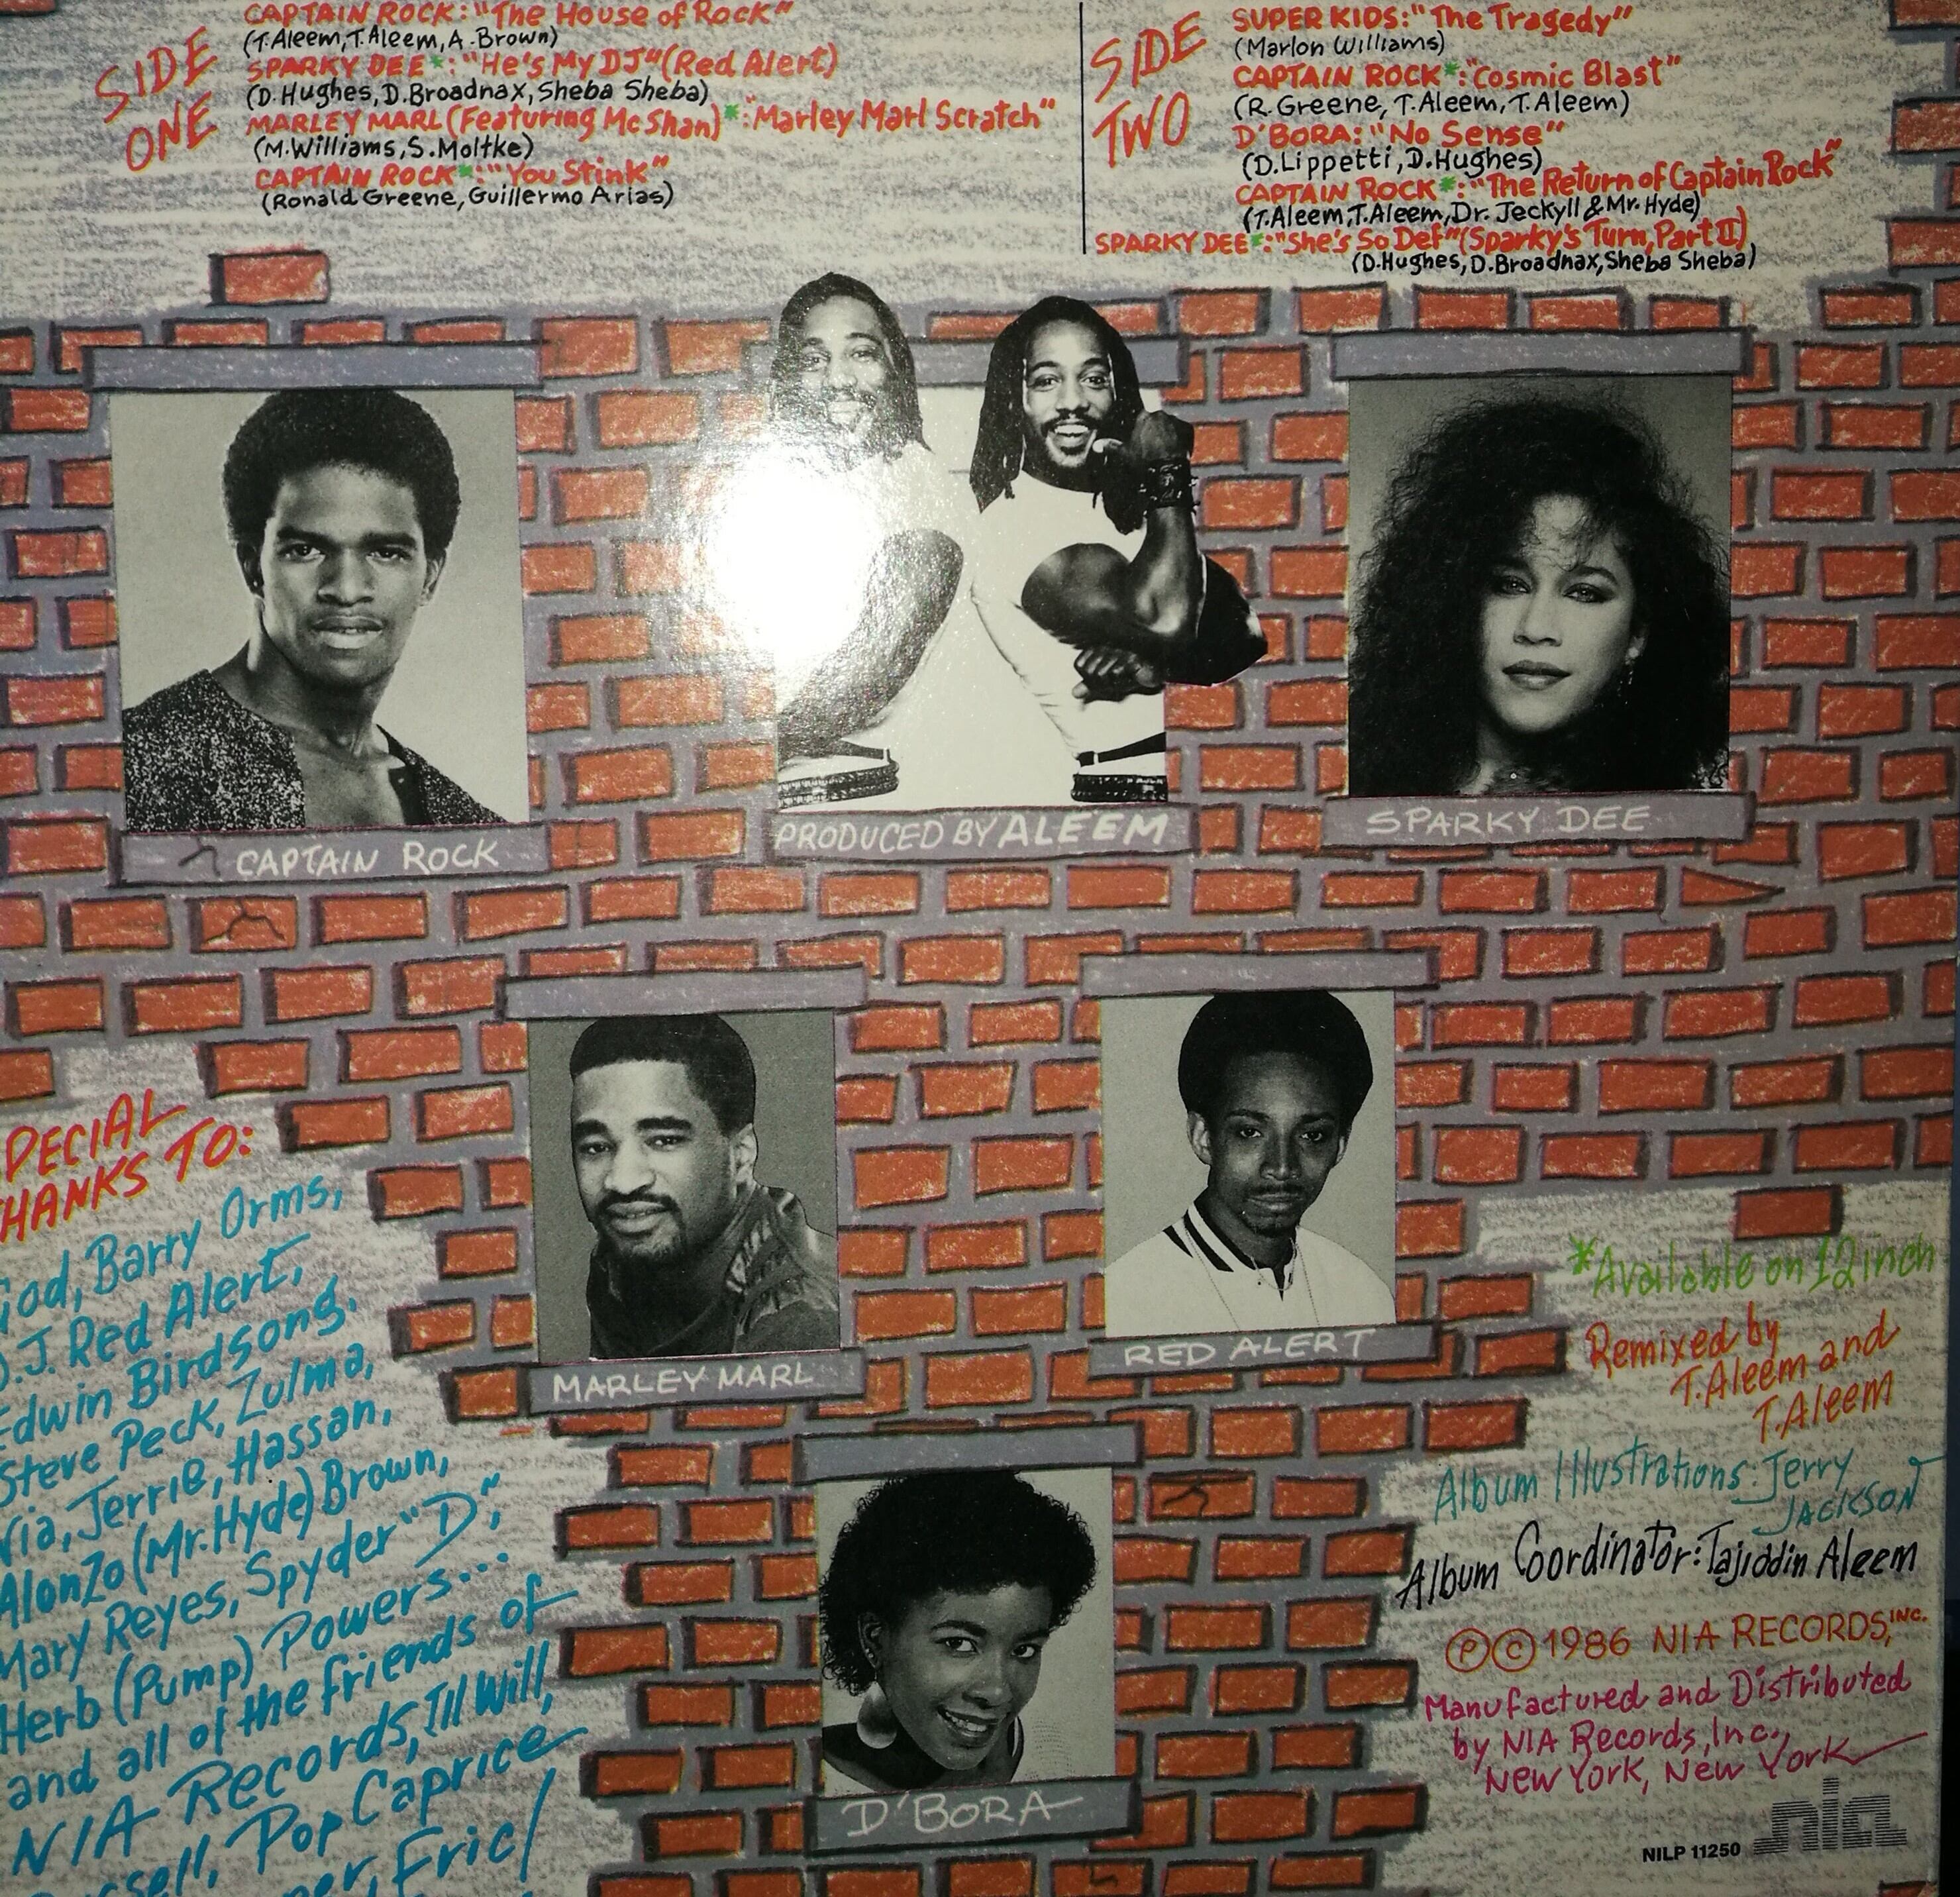 SIDE
ONE
CAPTAIN ROCK: "The House of Rock"
(T. Aleem, T. Aleem, A. Brown)
SPARKY DEE*: "He's My DJ" (Red Alert)
(D. Hughes, D. Broadnax, Sheba Sheba)
MARLEY MARL (Featuring Mc Shan)*: "Marley Marl Scratch"
(M. Williams, S. Moltke)
CAPTAIN ROCK*: "You Stink"
(Ronald Greene, Guillermo Arias)
SIDE
TWO
SUPER KIDS: "The Tragedy"
(Marlon Williams)
CAPTAIN ROCK*: "Cosmic Blast"
(R. Greene, T. Aleem, T. Aleem)
D'BORA: "No Sense"
(D. Lippetti, D. Hughes)
CAPTAIN ROCK*: "The Return of Captain Rock"
(T. Aleem, T. Aleem, Dr. Jeckyll & Mr. Hyde)
SPARKY DEE*: "She's So Def" (Sparky's Turn, Part II)
(D. Hughes, D. Broadnax, Sheba Sheba)
CAPTAIN ROCK
PRODUCED BY ALEEM
SPARKY DEE
MARLEY MARL
RED ALERT
D'BORA
SPECIAL
THANKS TO:
God, Barry Orms,
D.J. Red Alert,
Edwin Birdsong,
Steve Peck, Zulma,
Nia, Jerrie, Hassan,
Alonzo (Mr. Hyde) Brown,
Mary Reyes, Spyder "D",
Herb (Pump) Powers...
and all of the friends of
NIA Records, Ill Will,
Pop Caprice
Eric!
*Available on 12 inch
Remixed by
T. Aleem and
T. Aleem
Album Illustrations: Jerry
JACKSON
Album Coordinator: Tajiddin Aleem
℗ © 1986 NIA RECORDS, INC.
Manufactured and Distributed
by NIA Records, Inc.,
New York, New York
nia
NILP 11250